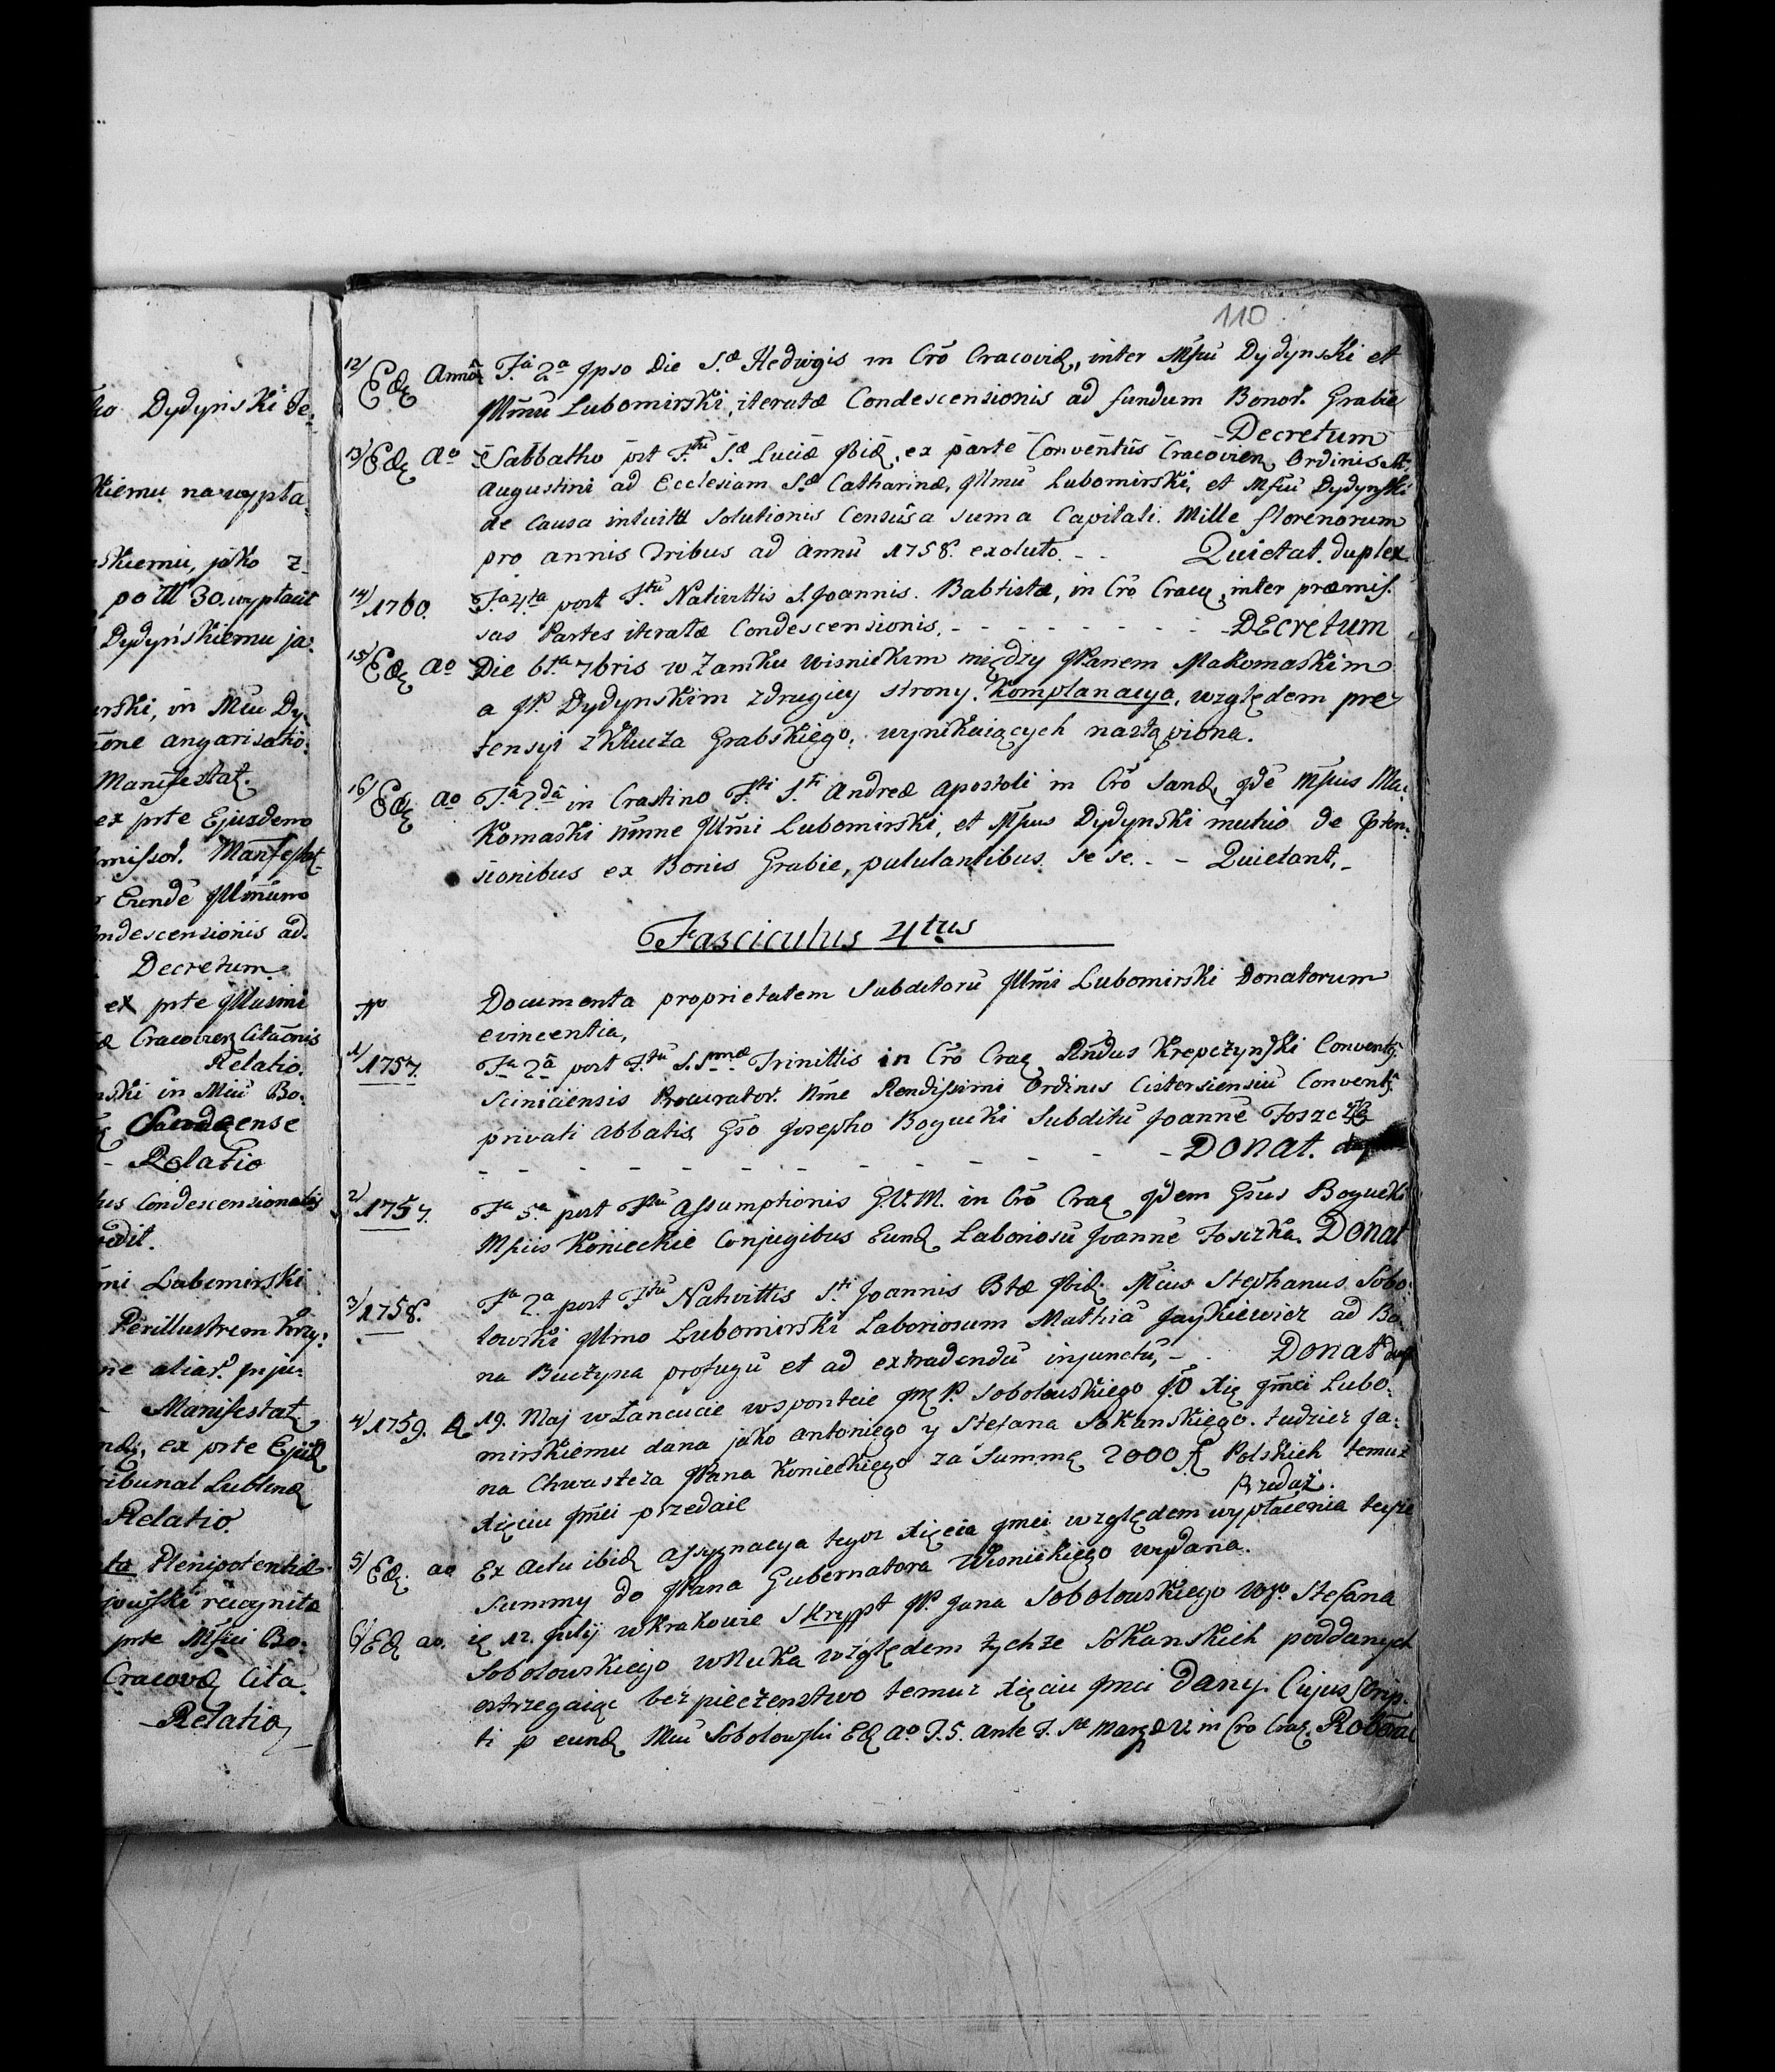 ho Dydyński de:
kiemu na wypła
skiemu, jako z
po ttl 30. wypłacił
Dydyńskiemu ja:
rski, in Mcu Dy
ione angarisatio:
Manifestat.
ex prte Ejusdem
missor. Manifestat
Eundē Jllmūm
ndescensionis ad
Decretum
ex prte Jllusmi
Cracovien Citaōnis
Relatio.
nski in Mcū Bo:
Sandecense
- Relatio
tus Condescensionalis
edit.
mi Lubomirski
Perillustrem Krzy:
ne aliar. inju:
- Manifestat
ndę, ex prte Ejūd
ribunal Lublinę
Relatio.
ta Plenipotentiæ
jowski recognita
prte Mfici Bo:
Cracovę Cita.
- Relatio
110
12/ Edę Annō F.a 2.a Jpso Die S.æ Hedwigis in Crō Cracovię, inter Mfcū Dydynski et
Jllmū Lubomirski, iteratæ Condescensionis ad fundum Bonor. Grabie
Decretum
13/ Edę Ao Sabbatho pst F.tū S.æ Luciæ Jbid. ex parte Conventūs Cracovien Ordinis St.
Augustini ad Ecclesiam S.æ Catharinæ, Jllmū Lubomirski, et Mfcū Dydynski
de Causa intuitu Solutionis Censūs a suma Capitali. Mille florenorum
pro annis Tribus ad annū 1758. exoluto. - - Quietat. duplex
14/ 1760. F.a 4.ta post F.tū Nativittis S. Joannis. Babtistæ, in Crō Cracę, inter præmis.
sas Partes iteratæ Condescensionis. - - - - - - - - - DECretum
15/ Edę Ao Die 6t.a 7bris w Zamku wisnickim między JPanem Makomaskim
a JP. Dydynskim z drugiey strony. Komplanacya, względem pre
tensyi z Klucza Grabskiego, wynikaiących nastąpiona.
16/ Edę Ao F.a 2.da in Crastino F.ti S.ti Andreæ Apostoli in Crō Sandę, Jdē Mfcus Ma:
komaski nōine Jllmi Lubomirski, et Mfcus Dydynski mutuo de præten:
sionibus ex Bonis Grabie, pululantibus se se. - - Quietant. -
Fasciculus 4tus
Documenta proprietatem Subditorū Jllmi Lubomirski Donatorum
evincentia,
1/ 1757. F.a 2.a post F.tū S.Smæ Trinittis in Crō Cracę Rndus Krepczynski Conventq
Sciniciensis Procurator. Nme Rendissimi Ordinis Cistersiensiū Conventq
privati Abbatis, Gso Josepho Bogucki Subditū Joannē Foszczę
- - - - - - - - - - - DONat. dup
2/ 1757. F.a 5.a post F.tū Assumptionis G.V.M. in Crō Cracę Jdem Gsus Bogucki
Mfcis Konieckie Conjugibus Eundę Laboriosū Joannē Foszczka. DONat
3/ 1758. F.a 2.a post F.tū Nativittis S.ti Joannis Btæ Jbid. Mcus Stephanus Sobo:
towski Jllmo Lubomirski Laboriosum Mathiā Jaykiewicz ad Bo.
na Buczyna profugū et ad extradendū injunctū, - . DONat dup
4/ 1759. A 19. Maj w Łancucie w sporcie Jmę P. Sobolewskiego J:O Xię Jmci Lubo:
mirskiemu dana jako Antoniego y Stefana Sokanskiego. tudziez Ja:
na Chwasteza JPana Konieckiego za Summę 2000 fl Polskich temuz
Xięciu Jmci przedaie Przedaż.
5/ Edę. ao Ex Actu ibid. Assygnacya tegoz Xięcia Jmci względem wypłacenia teyze
Summy do JPana Gubernatora Wisnickiego wydana.
6/ Edę ao. ię 12. Julij w Krakowie Skrypt JP. Jana Sobolowskiego Wgo. Stefana
Sobolowskiego wnuka względem tychze Sokanskich poddanych
ostrzegaiąc bezpieczenstwo temuz Xięciu Jmci Dany. Cujus Scrip.
ti p eundę Mcū Sobolowski Edę Ao F. 5. ante F. Stæ Margæ V. in Cro Crac. Roborat